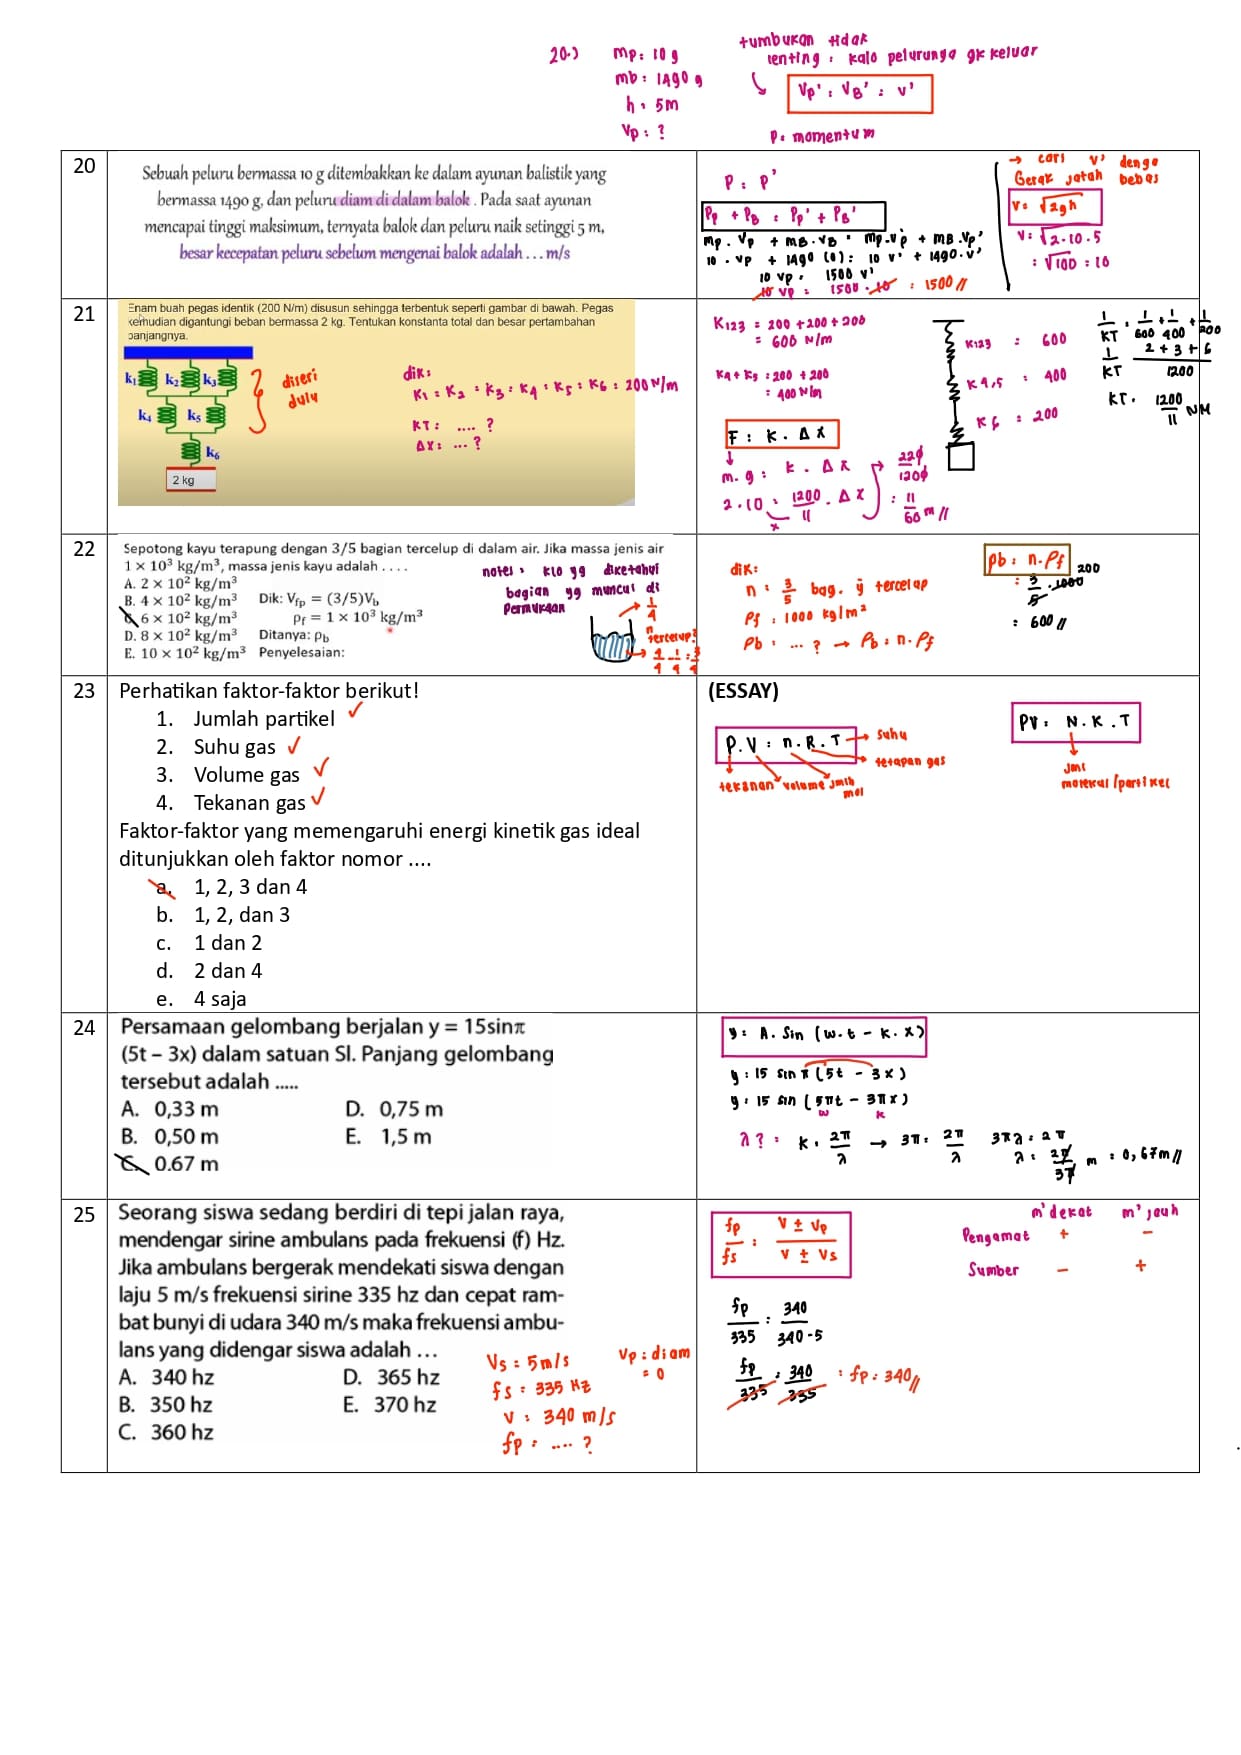 20.) mp: 10 g
mb: 1490 g
h: 5m
Vp: ?
tumbukan tidak
lenting: kalo pelurunya gk keluar
Vp' : VB' : v'
P = momentum
20
Sebuah peluru bermassa 10 g ditembakkan ke dalam ayunan balistik yang
bermassa 1490 g, dan peluru diam di dalam balok . Pada saat ayunan
mencapai tinggi maksimum, ternyata balok dan peluru naik setinggi 5 m,
besar kecepatan peluru sebelum mengenai balok adalah . . . m/s
P : P'
Pp + PB : Pp' + PB'
mp. Vp + mB. VB = mp.vp' + mB.Vp'
10 . vp + 1490 (0) : 10 v' + 1490.v'
10 vp = 1500 v'
10 vp = 1500 . 10 : 1500 //
→ cari v' denga
Gerak jatah bebas
v= √2gh
v= √2.10.5
: √100 : 10
21
Enam buah pegas identik (200 N/m) disusun sehingga terbentuk seperti gambar di bawah. Pegas
kemudian digantungi beban bermassa 2 kg. Tentukan konstanta total dan besar pertambahan
panjangnya.
k1 k2 k3
k4 k5
k6
2 kg
diseri
dulu
dik:
K1 = K2 = K3 = K4 = K5 = K6 = 200 N/m
KT : .... ?
Δx: ... ?
K123 = 200 +200 +200
= 600 N/m
K4 + K5 : 200 + 200
= 400 N/m
F : K . Δx
m. g : k . Δx
2 . 10 : 1200/11 . Δx
x
220/1200
: 11/60 m //
K123 : 600
K4,5 : 400
K6 : 200
1/KT = 1/600 + 1/400 + 1/200
1/KT 2 + 3 + 6 / 1200
KT. 1200/11 NM
22
Sepotong kayu terapung dengan 3/5 bagian tercelup di dalam air. Jika massa jenis air
1 × 10³ kg/m³, massa jenis kayu adalah . . . .
A. 2 × 10² kg/m³
B. 4 × 10² kg/m³ Dik: Vfp = (3/5)Vb
C. 6 × 10² kg/m³ ρf = 1 × 10³ kg/m³
D. 8 × 10² kg/m³ Ditanya: ρb
E. 10 × 10² kg/m³ Penyelesaian:
notes: klo yg diketahui
bagian yg muncul di
permukaan
1/4
n tercelup?
4/4 - 1/4 = 3/4
dik:
n : 3/5 bag. yg tercelap
ρf : 1000 kg/m²
ρb : ... ? → ρb : n. ρf
ρb : n. ρf
: 3/5 . 1000 200
: 600 //
23
Perhatikan faktor-faktor berikut!
1. Jumlah partikel ✓
2. Suhu gas ✓
3. Volume gas ✓
4. Tekanan gas ✓
Faktor-faktor yang memengaruhi energi kinetik gas ideal
ditunjukkan oleh faktor nomor ....
a. 1, 2, 3 dan 4
b. 1, 2, dan 3
c. 1 dan 2
d. 2 dan 4
e. 4 saja
(ESSAY)
P.V : n.R.T → suhu
→ tetapan gas
tekanan volume jmlh
mol
PV : N.K.T
jml
molekul /partikel
24
Persamaan gelombang berjalan y = 15sinπ
(5t – 3x) dalam satuan SI. Panjang gelombang
tersebut adalah .....
A. 0,33 m D. 0,75 m
B. 0,50 m E. 1,5 m
C. 0.67 m
y : A. sin (w.t - k.x)
y : 15 sin π (5t - 3x)
y : 15 sin (5πt - 3πx)
w k
λ ? : k : 2π/λ → 3π : 2π/λ 3πλ : 2π
λ : 2π/3π m : 0,67m //
25
Seorang siswa sedang berdiri di tepi jalan raya,
mendengar sirine ambulans pada frekuensi (f) Hz.
Jika ambulans bergerak mendekati siswa dengan
laju 5 m/s frekuensi sirine 335 hz dan cepat ram-
bat bunyi di udara 340 m/s maka frekuensi ambu-
lans yang didengar siswa adalah ...
A. 340 hz D. 365 hz
B. 350 hz E. 370 hz
C. 360 hz
Vs : 5m/s
fs : 335 Hz
v : 340 m/s
fp : .... ?
Vp : diam
= 0
fp/fs : V ± Vp / V ± Vs
m'dekat m'jauh
Pengamat + -
Sumber - +
fp/335 : 340/340-5
fp/335 : 340/335 : fp : 340 //